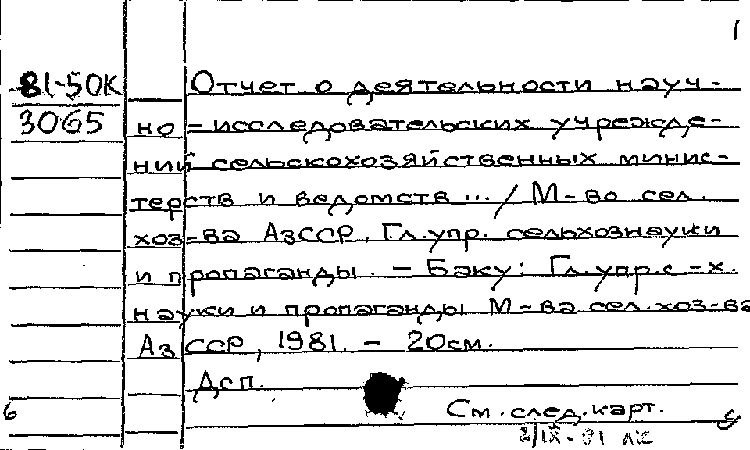 1
81-50К Отчет о деятельности науч-
3065 но-исследовательских учрежде-
ний сельскохозяйственных минис-
терств и ведомств... / М-во сел.
хоз-ва АзССР, Гл. упр. сельхознауки
и пропаганды. - Баку: Гл. упр. с-х.
науки и пропаганды М-ва сел. хоз-ва
АзССР, 1981. - 20см.
Дсп.
6 См. след. карт.